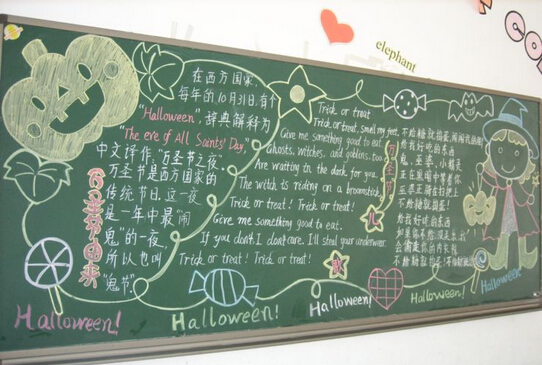 elephant
COL
在西方国家,
每年的10月31日,有个
"Halloween",辞典解释为
"The eve of All Saints' Day",
中文译作:"万圣节之夜"
万圣节是西方国家的
传统节日,这一夜
是一年中最"闹
鬼"的一夜,
所以也叫
"鬼节"
万圣节由来
Trick or treat
Trick or treat, Smell my feet,
Give me something good to eat.
Ghosts, witches, and goblins, too,
Are waiting in the dark for you.
The witch is riding on a broomstick
Trick or treat! Trick or treat!
Give me something good to eat.
If you don't I don't care. I'll steal your underwear.
Trick or treat! Trick or treat!
万圣节
儿歌
不给糖就捣蛋,
给我好吃的东西
鬼,巫婆,小鬼
正在黑暗中等着你
巫婆正骑在扫把上
不给糖就捣蛋!
给我好吃的东西
如果你不给
不给糖就捣蛋!
Halloween!
Halloween!
Halloween!
Halloween!
Halloween